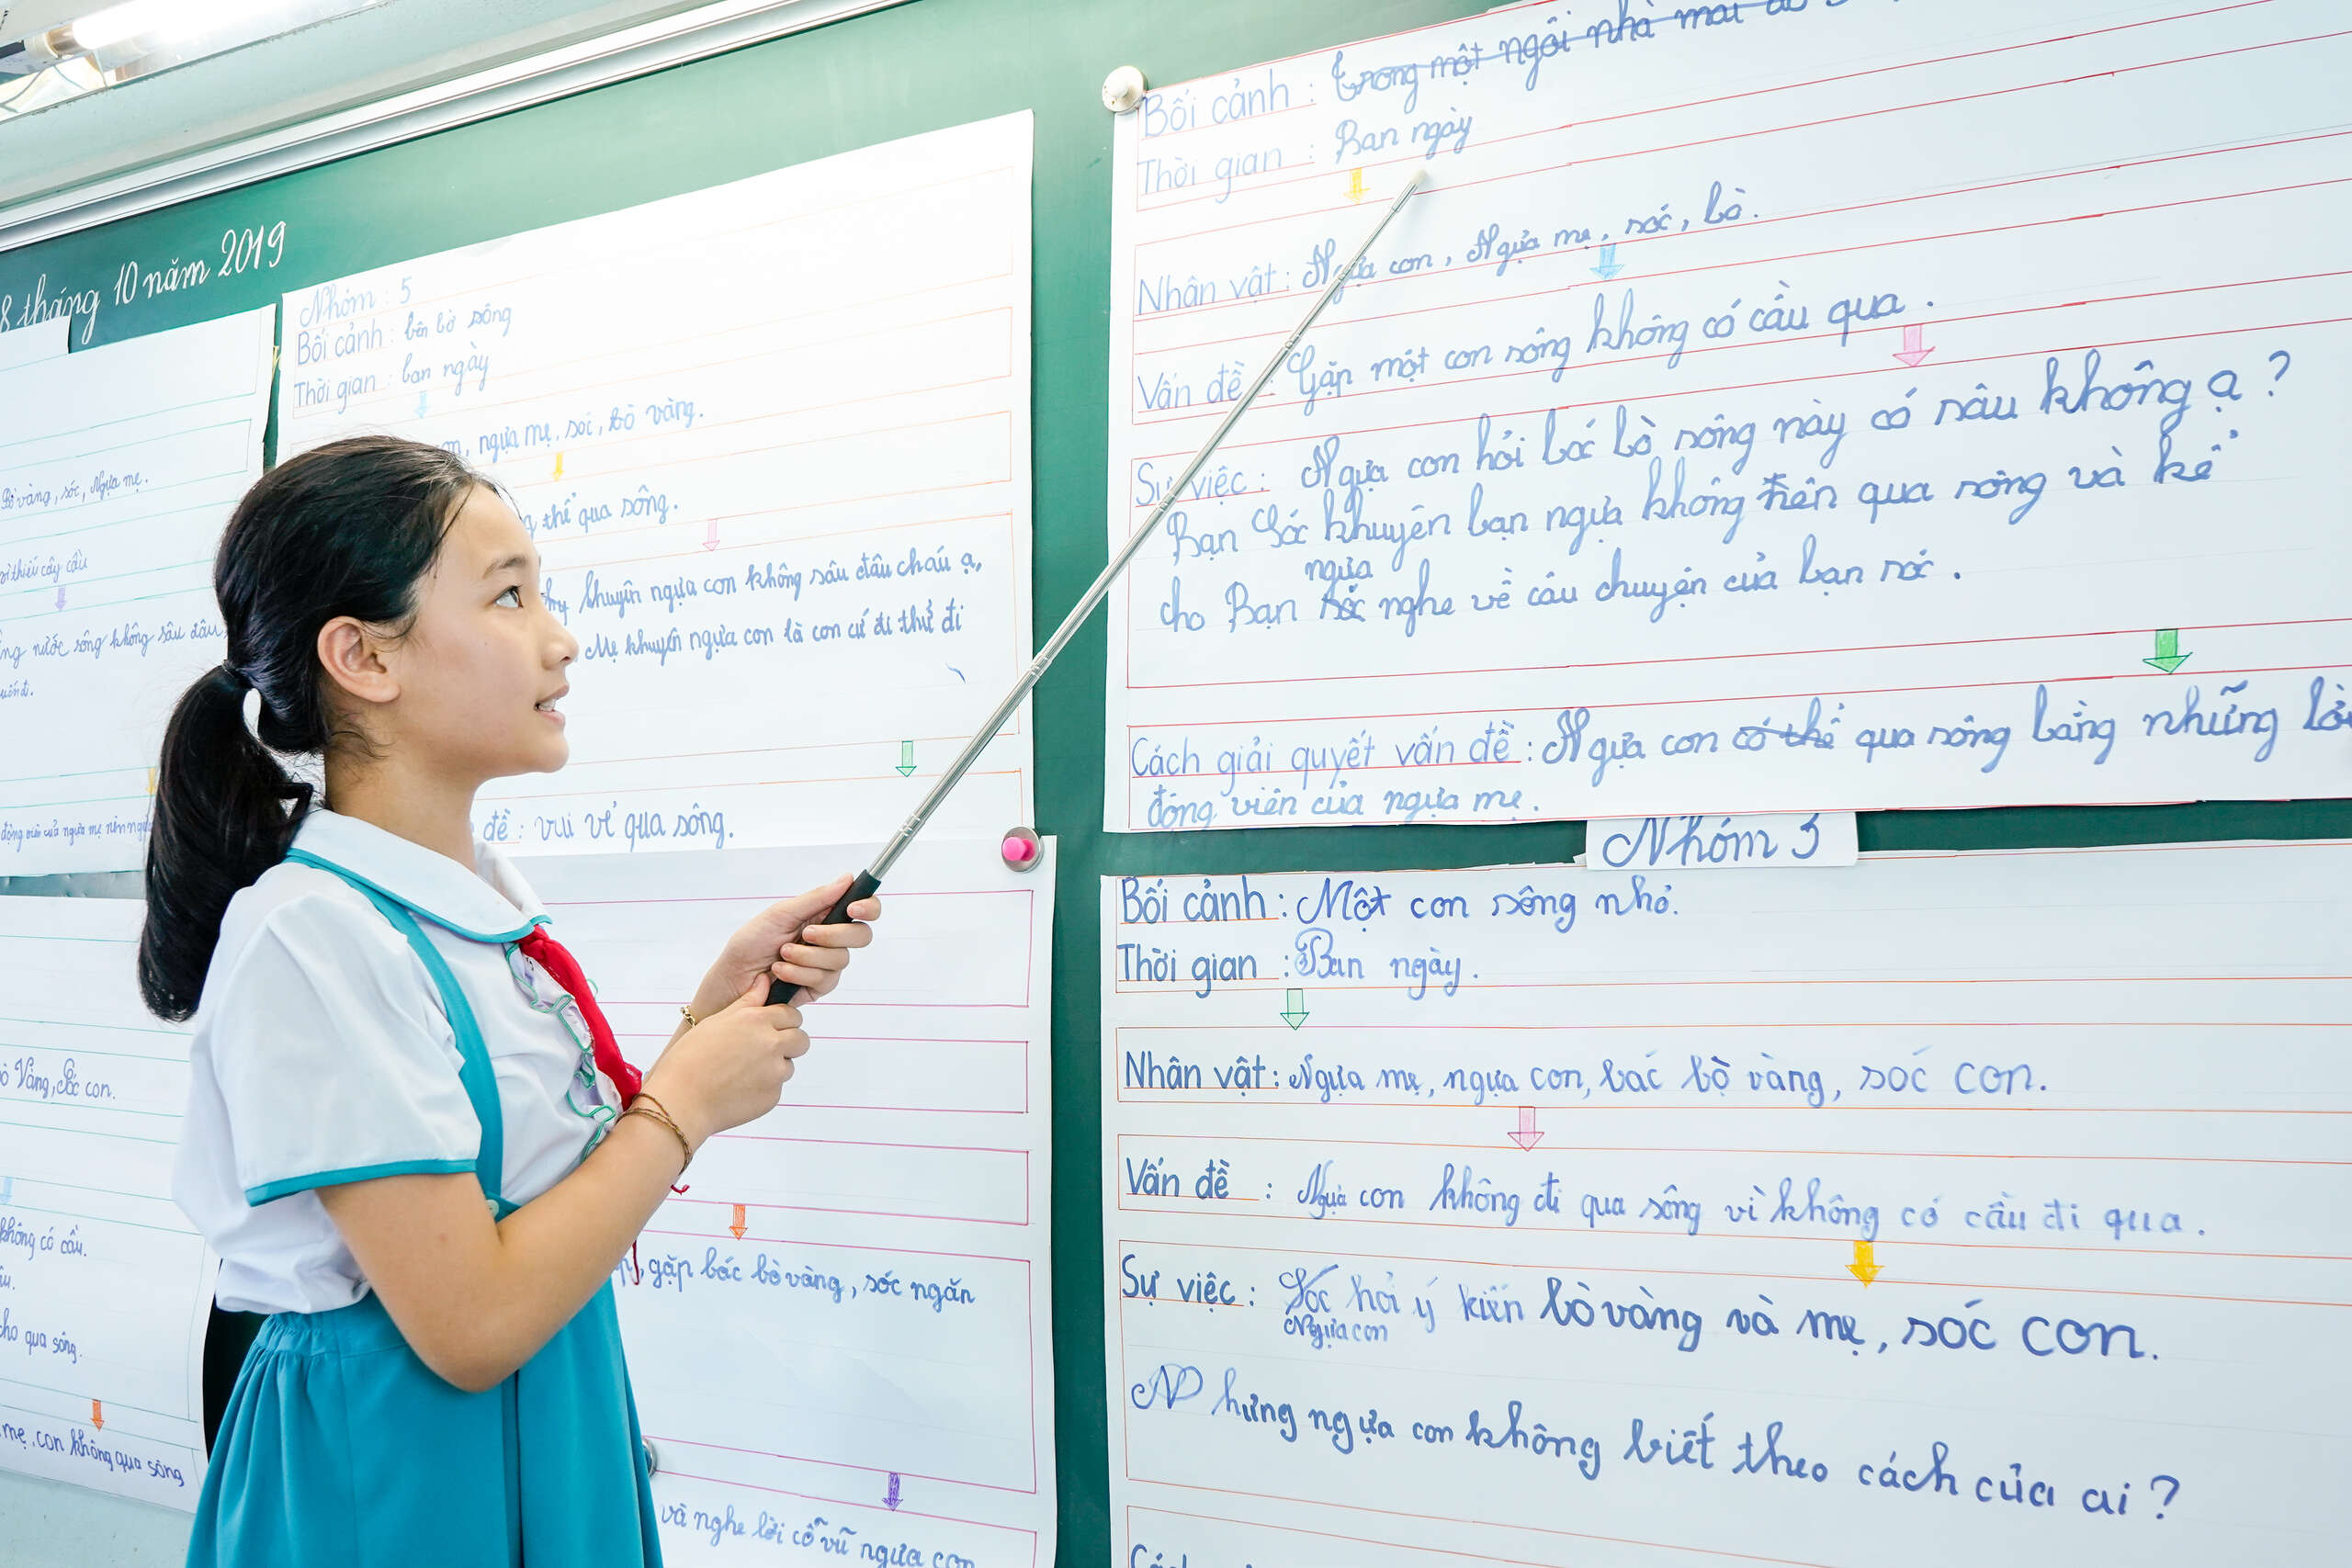 8 tháng 10 năm 2019
Bò vàng, sóc, Ngựa mẹ.
thiếu cây cầu
nước sông không sâu đâu,
động viên của ngựa mẹ nên ngựa
Nhóm : 5
Bối cảnh : bên bờ sông
Thời gian : ban ngày
ngựa mẹ, sóc, bò vàng.
thể qua sông.
khuyên ngựa con không sâu đâu cháu ạ,
Mẹ khuyên ngựa con là con cứ đi thử đi
đề : vui vẻ qua sông.
Bối cảnh : Trong một ngôi nhà
Thời gian : Ban ngày
Nhân vật : Ngựa con, Ngựa mẹ, sóc, bò.
Vấn đề : Gặp một con sông không có cầu qua.
Sự việc : Ngựa con hỏi bác bò sông này có sâu không ạ ?
Bạn Sóc khuyên bạn ngựa không nên qua sông và kể
ngựa
cho Bạn sóc nghe về câu chuyện của bạn sóc.
Cách giải quyết vấn đề : Ngựa con có thể qua sông bằng những
động viên của ngựa mẹ.
Vàng, Sóc con.
không có cầu.
cho qua sông.
mẹ, con không qua sông
gặp bác bò vàng, sóc ngăn
và nghe lời cổ vũ ngựa con
Nhóm 5
Bối cảnh : Một con sông nhỏ.
Thời gian : Ban ngày.
Nhân vật : Ngựa mẹ, ngựa con, bác bò vàng, sóc con.
Vấn đề : Ngựa con không đi qua sông vì không có cầu đi qua.
Sự việc : Sóc hỏi ý kiến bò vàng và mẹ, sóc con.
Ngựa con
Nhưng ngựa con không biết theo cách của ai ?